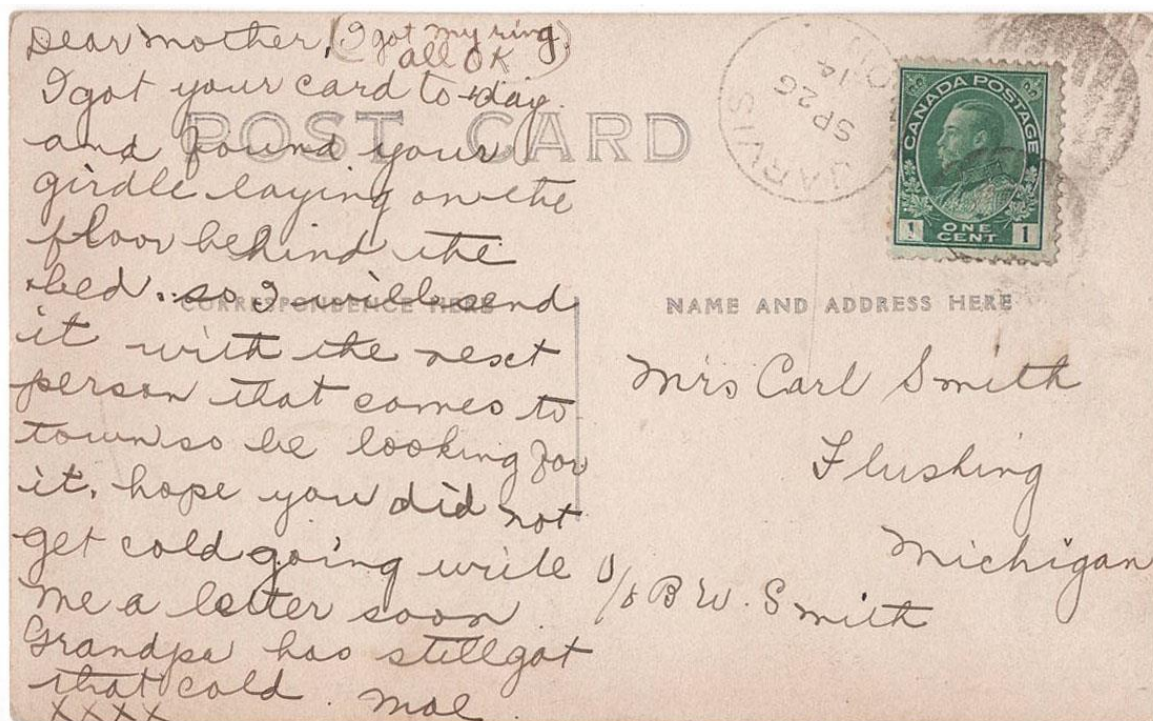 Dear mother, (I got my ring
all OK)
I got your card to day
and found your
girdle laying on the
floor behind the
bed. so I will send
it with the next
person that comes to
town so be looking for
it. hope you did not
get cold going write
me a letter soon
Grandpa has still got
that cold. Mae
XXXX
POST CARD
CORRESPONDENCE HERE
JARVIS
SP 26
14
ONT
CANADA POSTAGE
1 ONE CENT 1
NAME AND ADDRESS HERE
Mrs Carl Smith
Flushing
Michigan
c/o B W. Smith